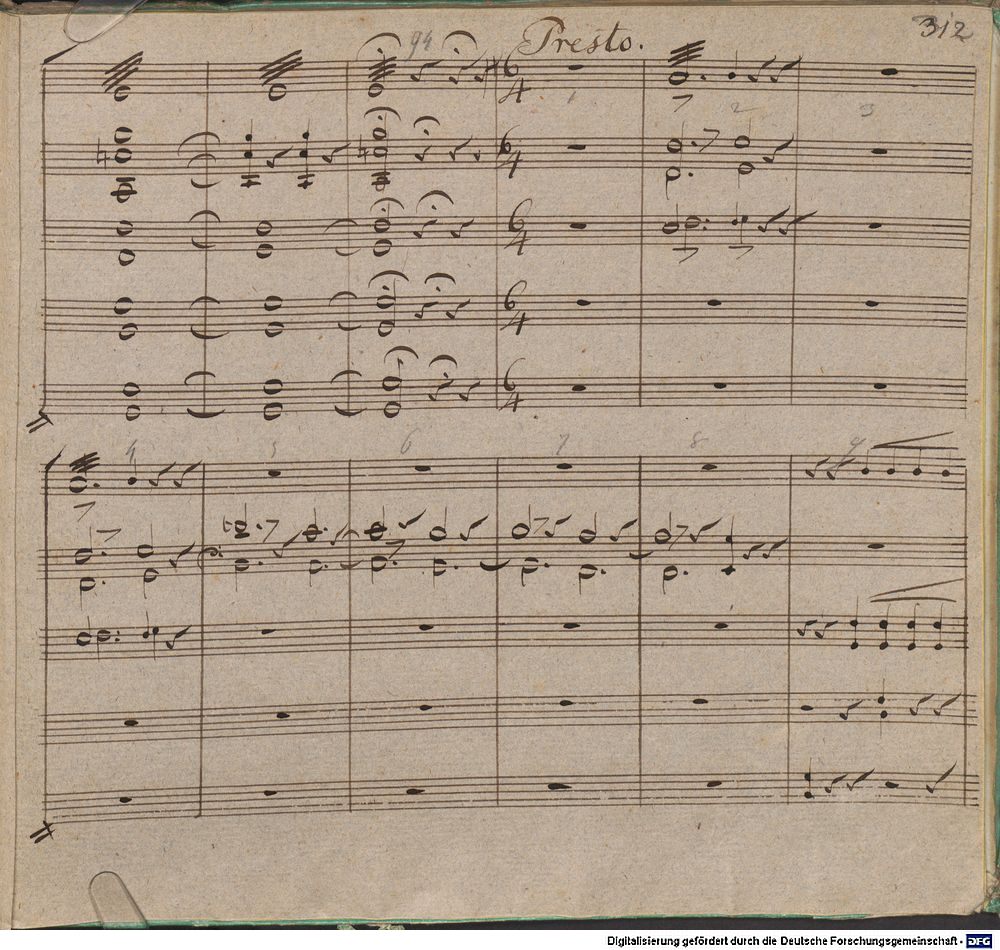 94 Presto. 312
6 6 6 6 6
4 4 4 4 4
1 2 3
4 5 6 7 8 9
Digitalisierung gefördert durch die Deutsche Forschungsgemeinschaft - DFG